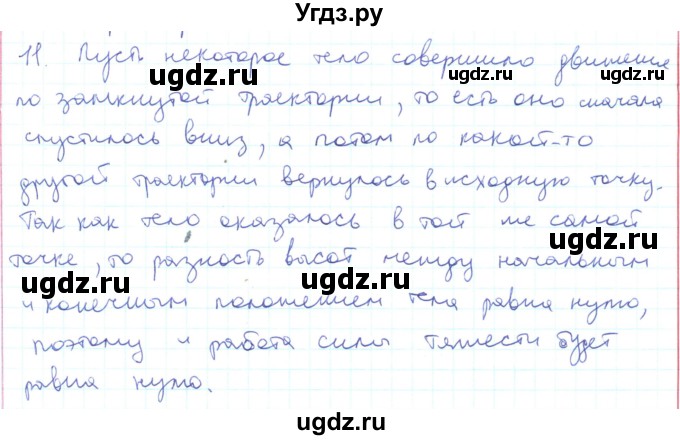 Угдз.ру
11. Пусть некоторое тело совершило движения
по замкнутой траектории, то есть оно сначала
спустилось вниз, а потом по какой-то
другой траектории вернулось в исходную точку.
Так как тело оказалось в той же самой
точке, то разность высот между начальным
и конечным положением тела равна нулю,
поэтому и работа силы тяжести будет
равна нулю.
ugdz.ru
ugdz.ru
ugdz.ru
ugdz.ru
ugdz.ru
ugdz.ru
ugdz.ru
ugdz.ru
ugdz.ru